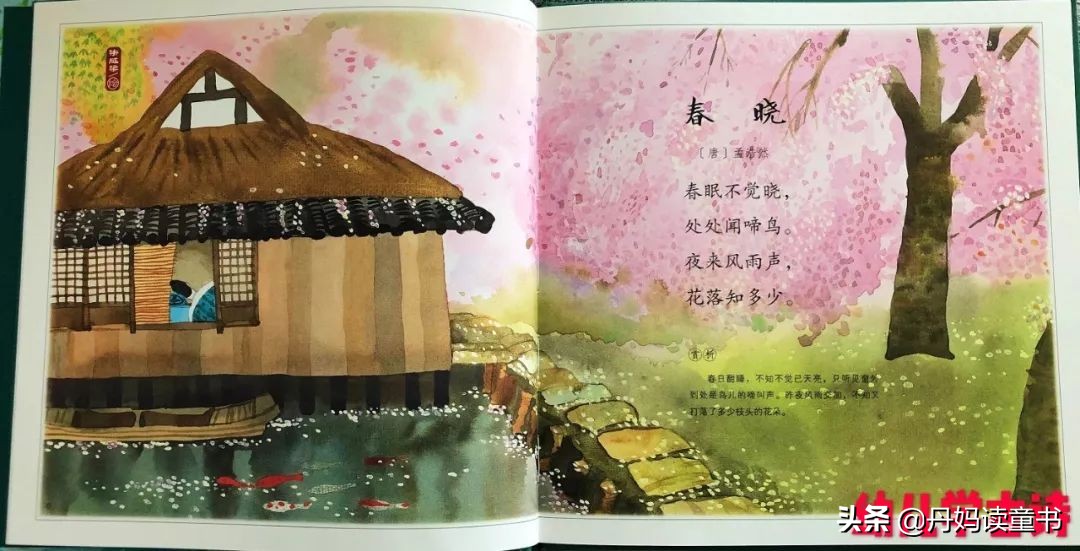 春 晓
〔唐〕孟浩然
春眠不觉晓，
处处闻啼鸟。
夜来风雨声，
花落知多少。
赏析
春日酣睡，不知不觉已天亮，只听见窗外
到处是鸟儿的鸣叫声。昨夜风雨交加，不知又
打落了多少枝头的花朵。
幼儿学古诗
头条 @丹妈读童书